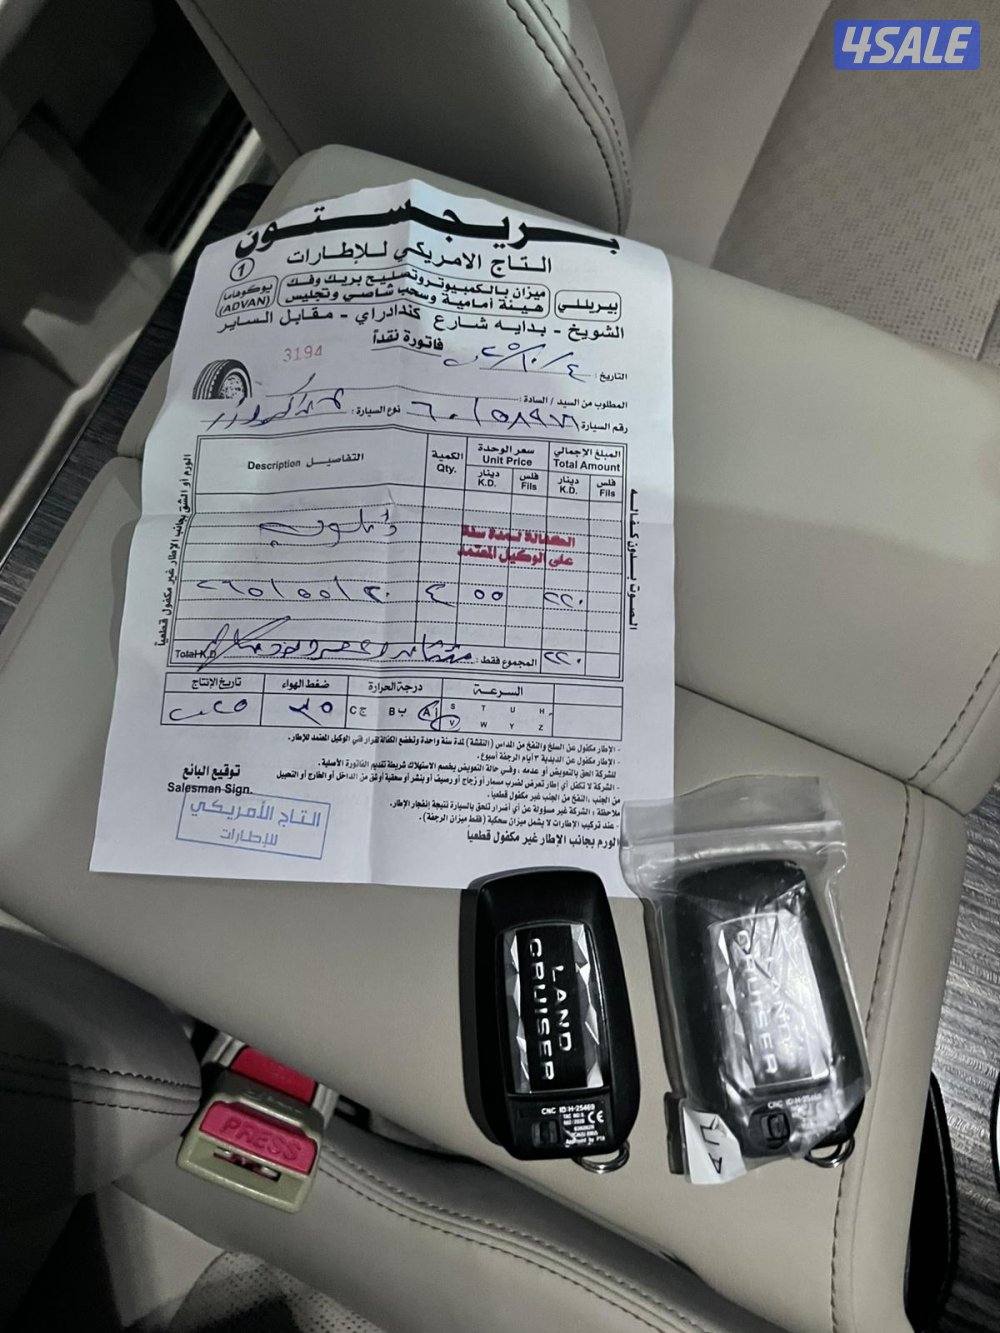 4SALE
بريجستون
التاج الامريكي للإطارات
1
بيريللي
ميزان بالكمبيوتر وتصليح بريك وفك
هيئة أمامية وسحب شاصي وتجليس
يوكوهاما
(ADVAN)
الشويخ - بدايه شارع كندادراي - مقابل الساير
فاتورة نقداً
3194
التاريخ:
المطلوب من السيد / السادة:
رقم السيارة: ٦٠/٥٨٩٧١ نوع السيارة:
المبلغ الإجمالي سعر الوحدة الكمية التفاصيل Description
Total Amount Unit Price Qty.
فلس دينار فلس دينار
Fils K.D. Fils K.D.
دنلوب
الكفالة لمدة سنة
على الوكيل المعتمد
٢٢٠ ٥٥ ٤ ٢٦٥/٥٥/٢٠
٢٢٠ المجموع فقط: Total K.D
الورم أو الشق بجانب الإطار غير مكفول قطعياً
الصوت بدون كفالة
السرعة درجة الحرارة ضغط الهواء تاريخ الإنتاج
S T U H
V W Y Z
A أ B ب C ج
٣٥
- الإطار مكفول عن السلخ والنفخ من المداس (النقشة) لمدة سنة واحدة وتخضع الكفالة لقرار فني الوكيل المعتمد للإطار.
- الإطار مكفول عن الدبدبة ٣ أيام الرجفة أسبوع.
للشركة الحق بالتعويض أو عدمه، وفي حالة التعويض يخصم الاستهلاك شريطة تقديم الفاتورة الأصلية.
- الشركة لا تكفل أي إطار تعرض لضرب مسمار أو زجاج أو رصيف أو بنشر أو سحقية أو شق من الداخل أو الخارج أو التحبيل
من الجنب، النفخ من الجنب غير مكفول قطعياً.
ملاحظة: الشركة غير مسؤولة عن أي أضرار تلحق بالسيارة نتيجة إنفجار الإطار.
- عند تركيب الإطارات لا يشمل ميزان سحكية (فقط ميزان الرجفة).
الورم بجانب الإطار غير مكفول قطعياً
توقيع البائع
Salesman Sign.
التاج الأمريكي
للإطارات
LAND
CRUISER
CNC ID:H-25469
CE
Approved by PTA
LAND
CRUISER
PRESS